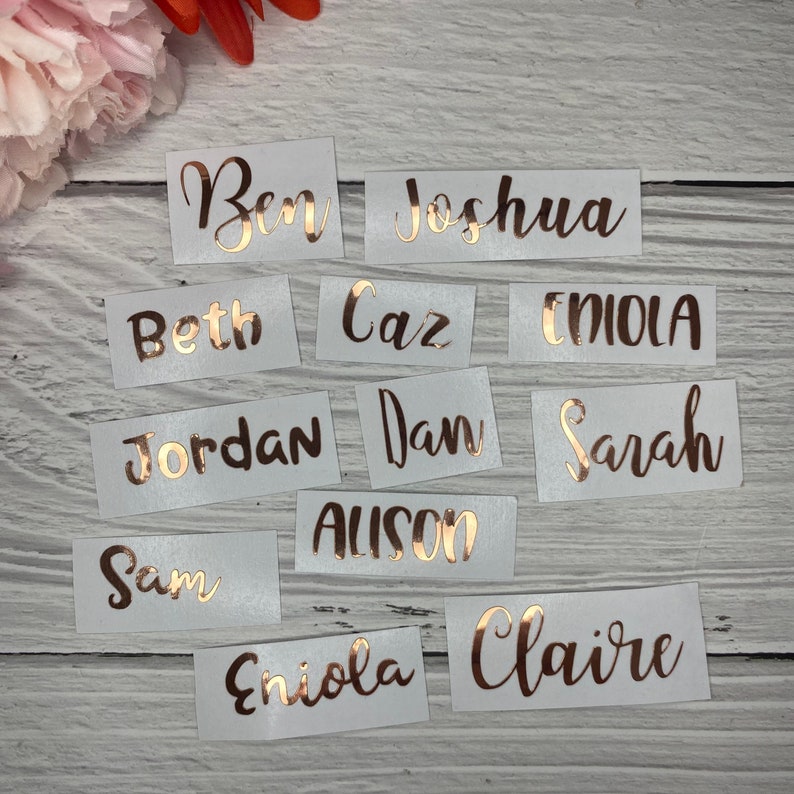 Ben
Joshua
Beth
Caz
ENIOLA
Jordan
Dan
Sarah
ALISON
Sam
Eniola
Claire